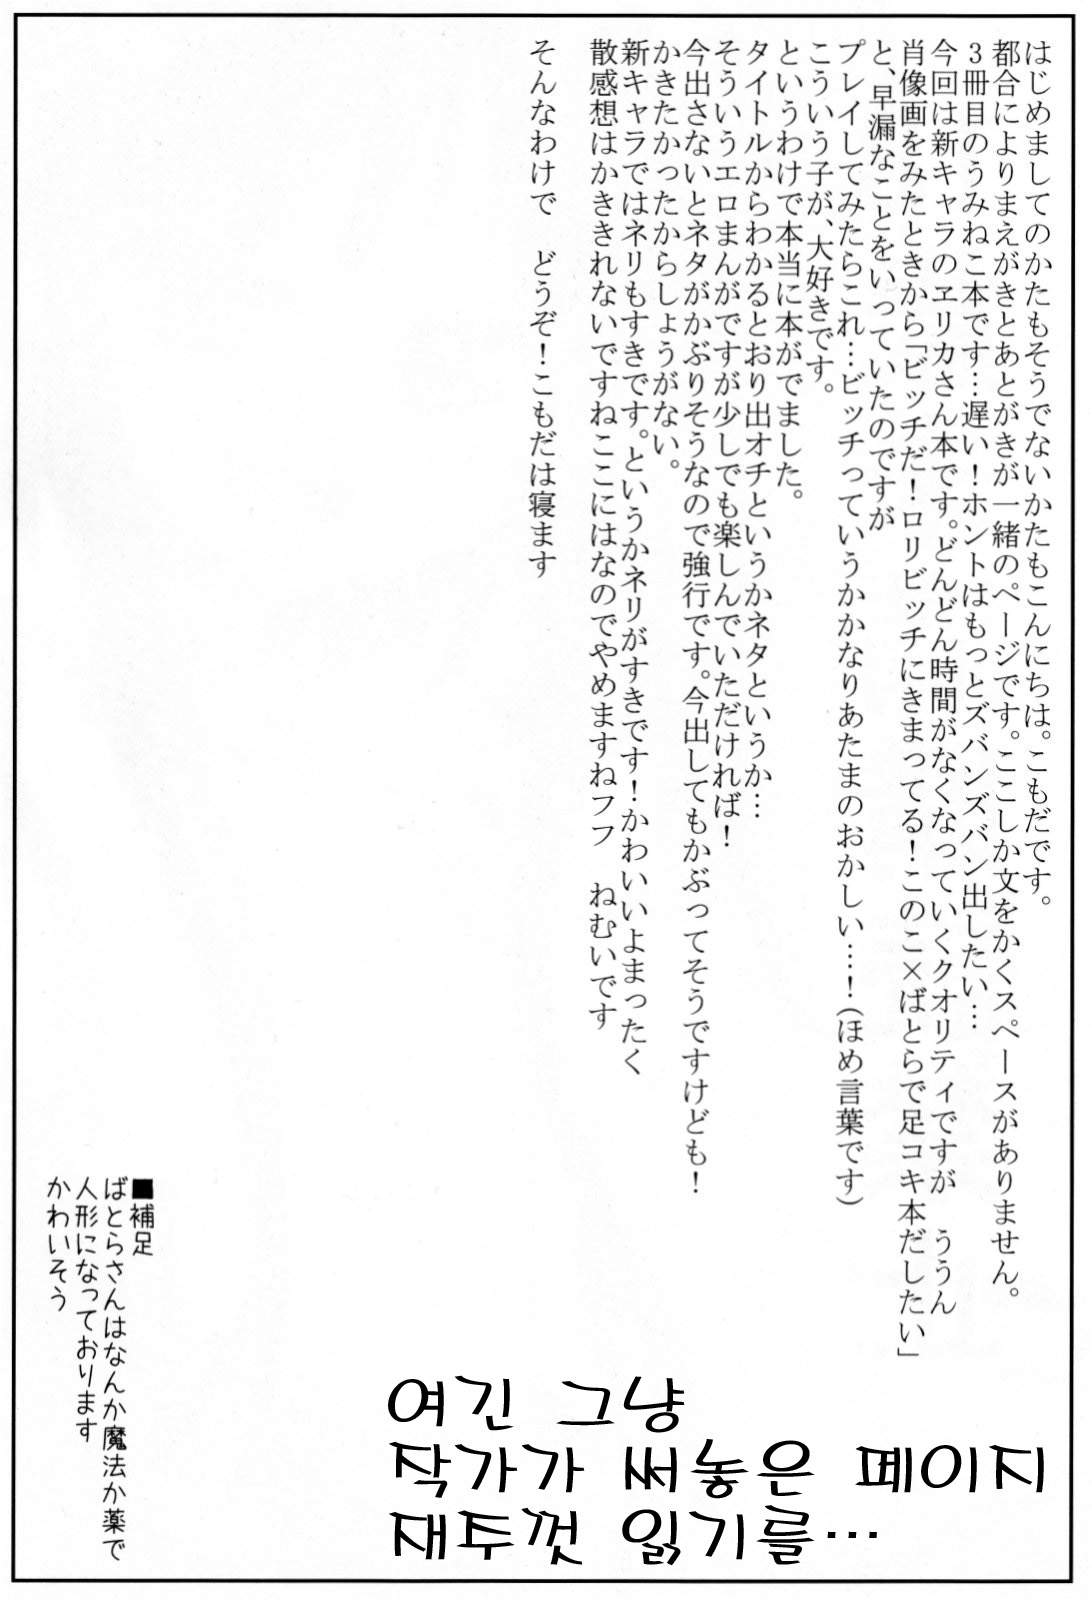 はじめましてのかたもそうでないかたもこんにちは。こもだです。
都合によりまえがきとあとがきが一緒のページです。ここしか文をかくスペースがありません。
3冊目のうみねこ本です…遅い!ホントはもっとズバンズバン出したい…
今回は新キャラのヱリカさん本です。どんどん時間がなくなっていくクオリティですが ううん
肖像画をみたときから「ビッチだ!ロリビッチにきまってる!このこ×ばとらで足コキ本だしたい」
と、早漏なことをいっていたのですが
プレイしてみたらこれ…ビッチっていうかかなりあたまのおかしい…!(ほめ言葉です)
こういう子が、大好きです。
というわけで本当に本がでました。
タイトルからわかるとおり出オチというかネタというか…
そういうエロまんがですが少しでも楽しんでいただければ!
今出さないとネタがかぶりそうなので強行です。今出してもかぶってそうですけども!
かきたかったからしょうがない。
新キャラではネリもすきです。というかネリがすきです!かわいいよまったく
散感想はかききれないですねここにはなのでやめますねフフ ねむいです
そんなわけで どうぞ!こもだは寝ます
■補足
ばとらさんはなんか魔法か薬で
人形になっております
かわいそう
여긴 그냥
작가가 써놓은 페이지
재두껏 읽기를…